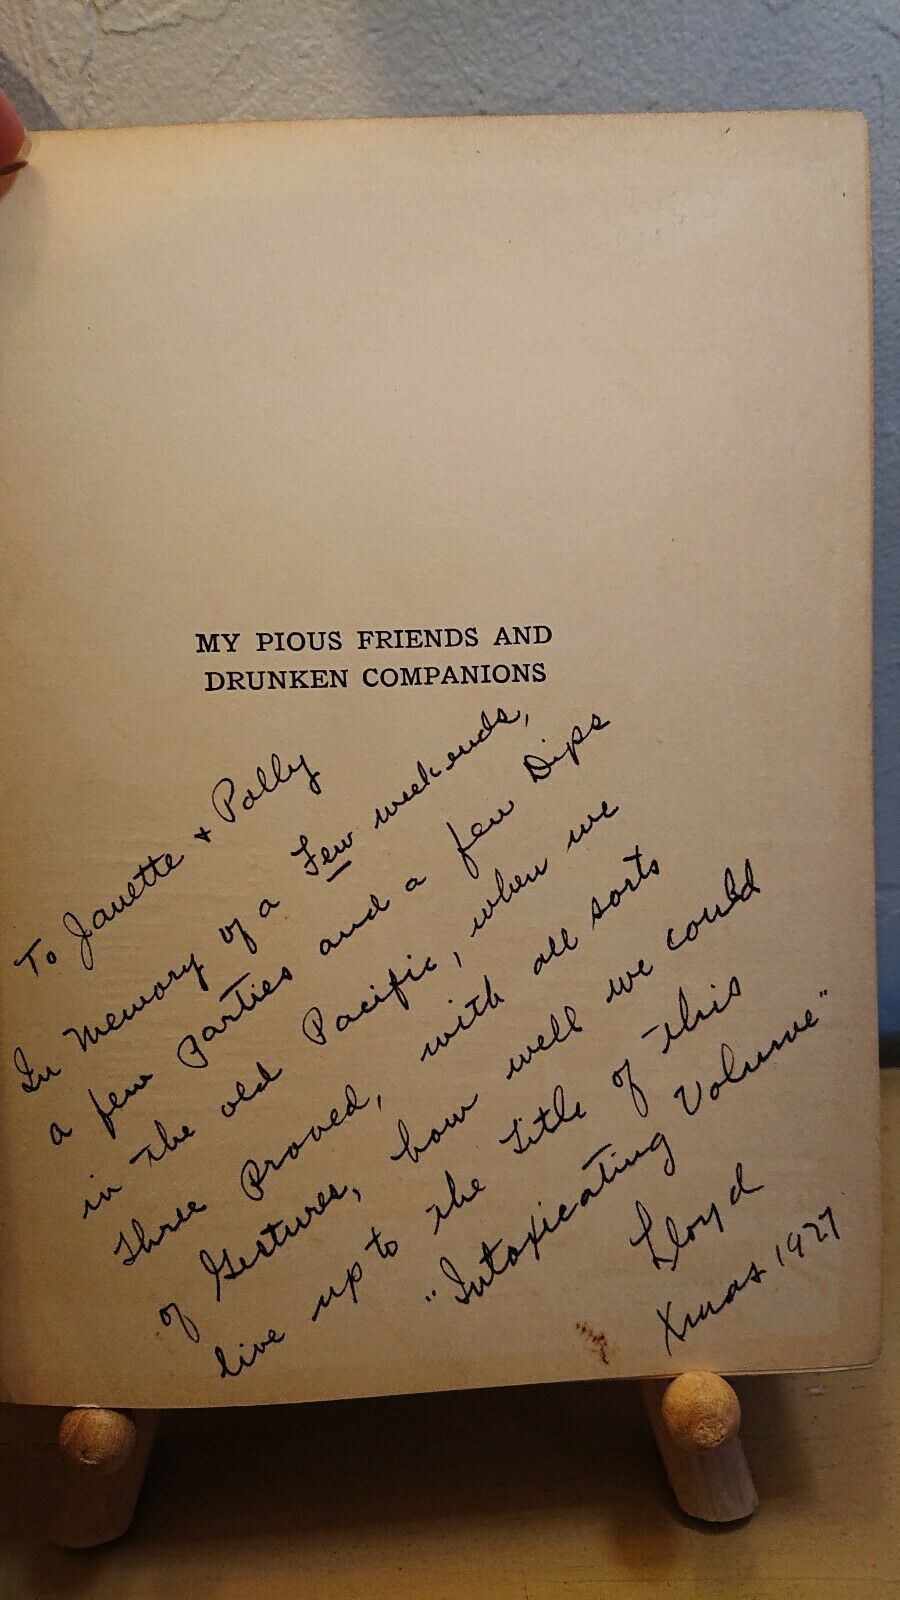 MY PIOUS FRIENDS AND
DRUNKEN COMPANIONS
To Janette + Polly
In Memory of a Few weekends,
a few Parties and a few Dips
in the old Pacific, when we
Three Proved, with all sorts
of Gestures, how well we could
live up to the Title of this
"Intoxicating Volume"
Lloyd
Xmas 1927